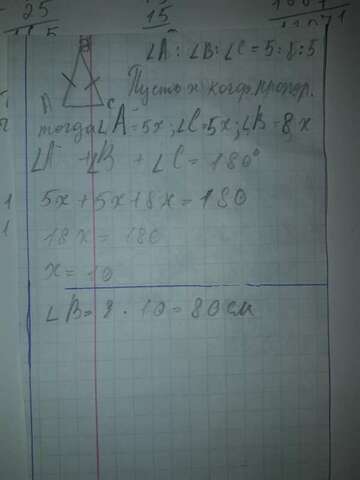 25
15
B
∠A : ∠B : ∠C = 5 : 8 : 5
A C
Пусть x коэф. пропор.
тогда ∠A = 5x; ∠C = 5x; ∠B = 8x
∠A + ∠B + ∠C = 180°
5x + 5x + 8x = 180
18x = 180
x = 10
∠B = 8 · 10 = 80 см